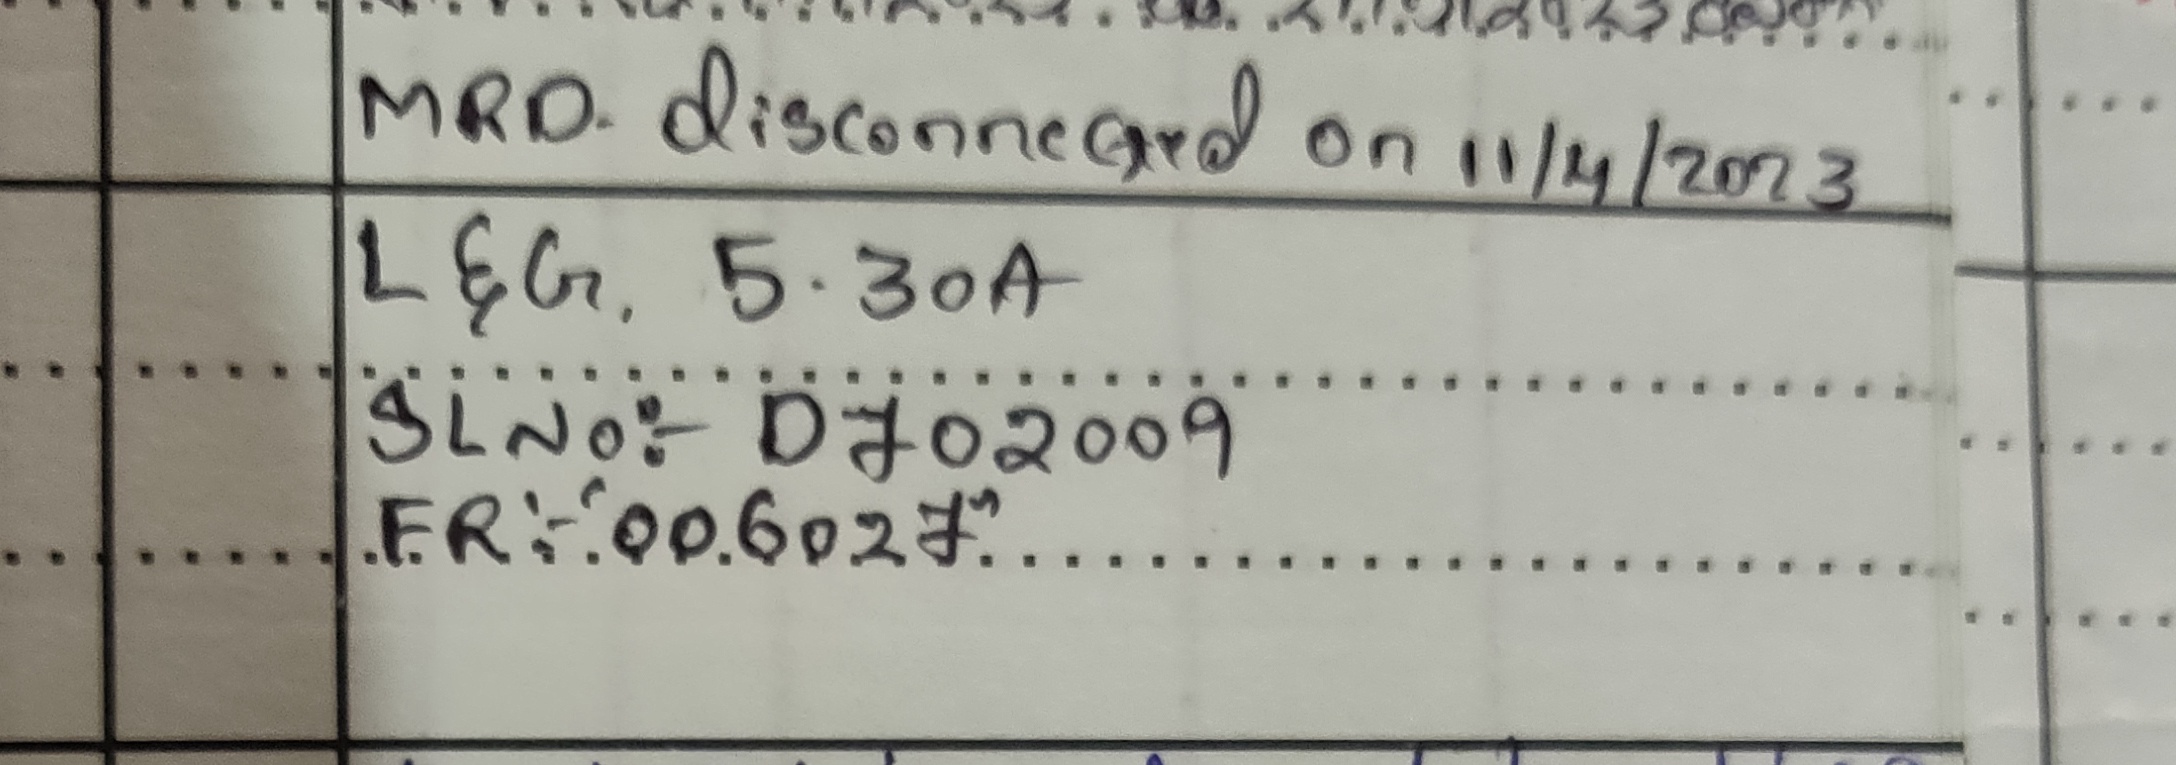 MRD. disconnected on 11/4/2023
L &G, 5.30A
SLNo:- D702009
FR:- "006027"